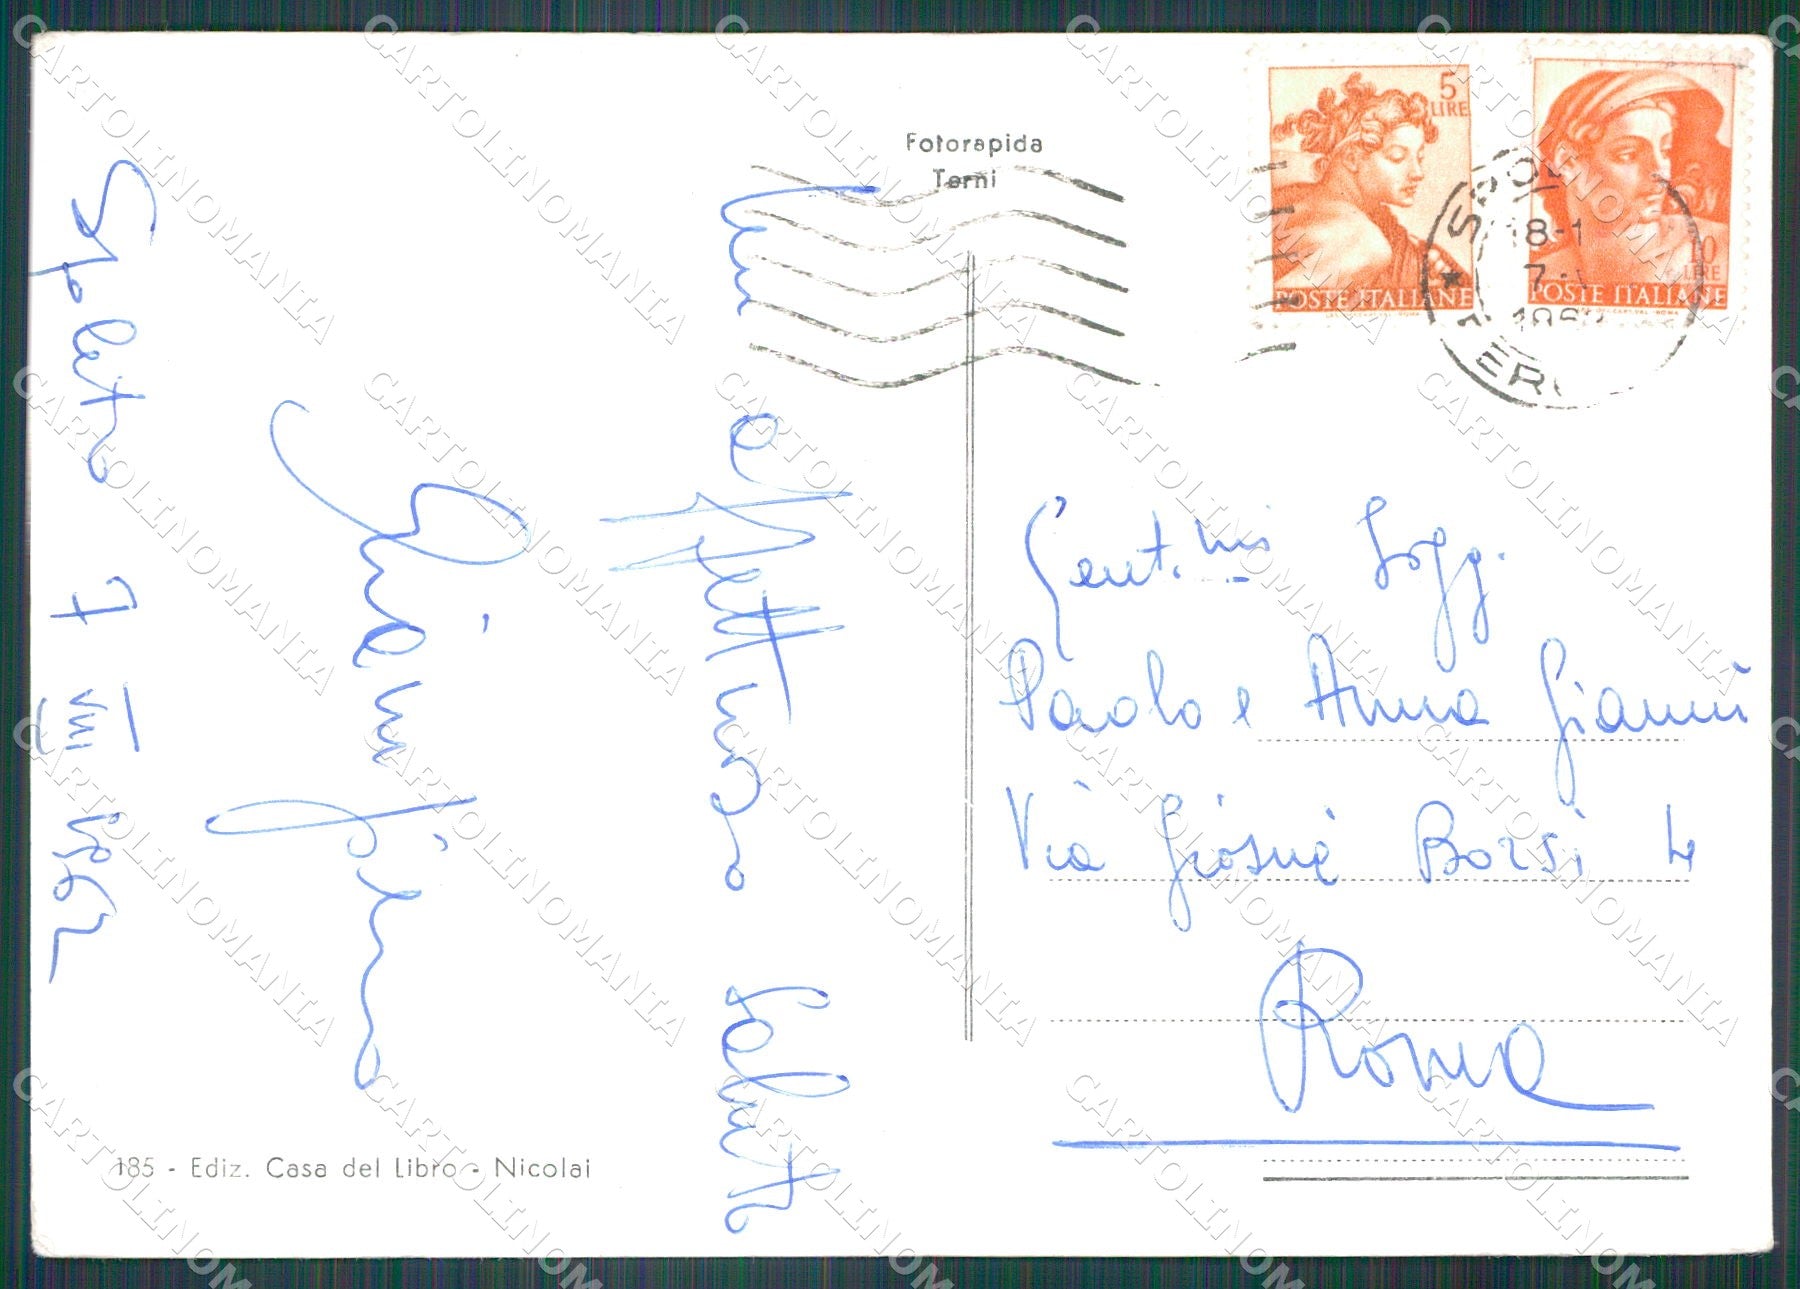 Fotorapida
Terni
5
LIRE
POSTE ITALIANE
10
LIRE
POSTE ITALIANE
18-1
Spoleto 7 VIII 1962
Un affettuoso saluto
Gianfranco
Gent.mi Sigg.
Paolo e Anna Giannù
Via Giosuè Borsi 4
Roma
185 - Ediz. Casa del Libro - Nicolai
CARTOLINOMANIA